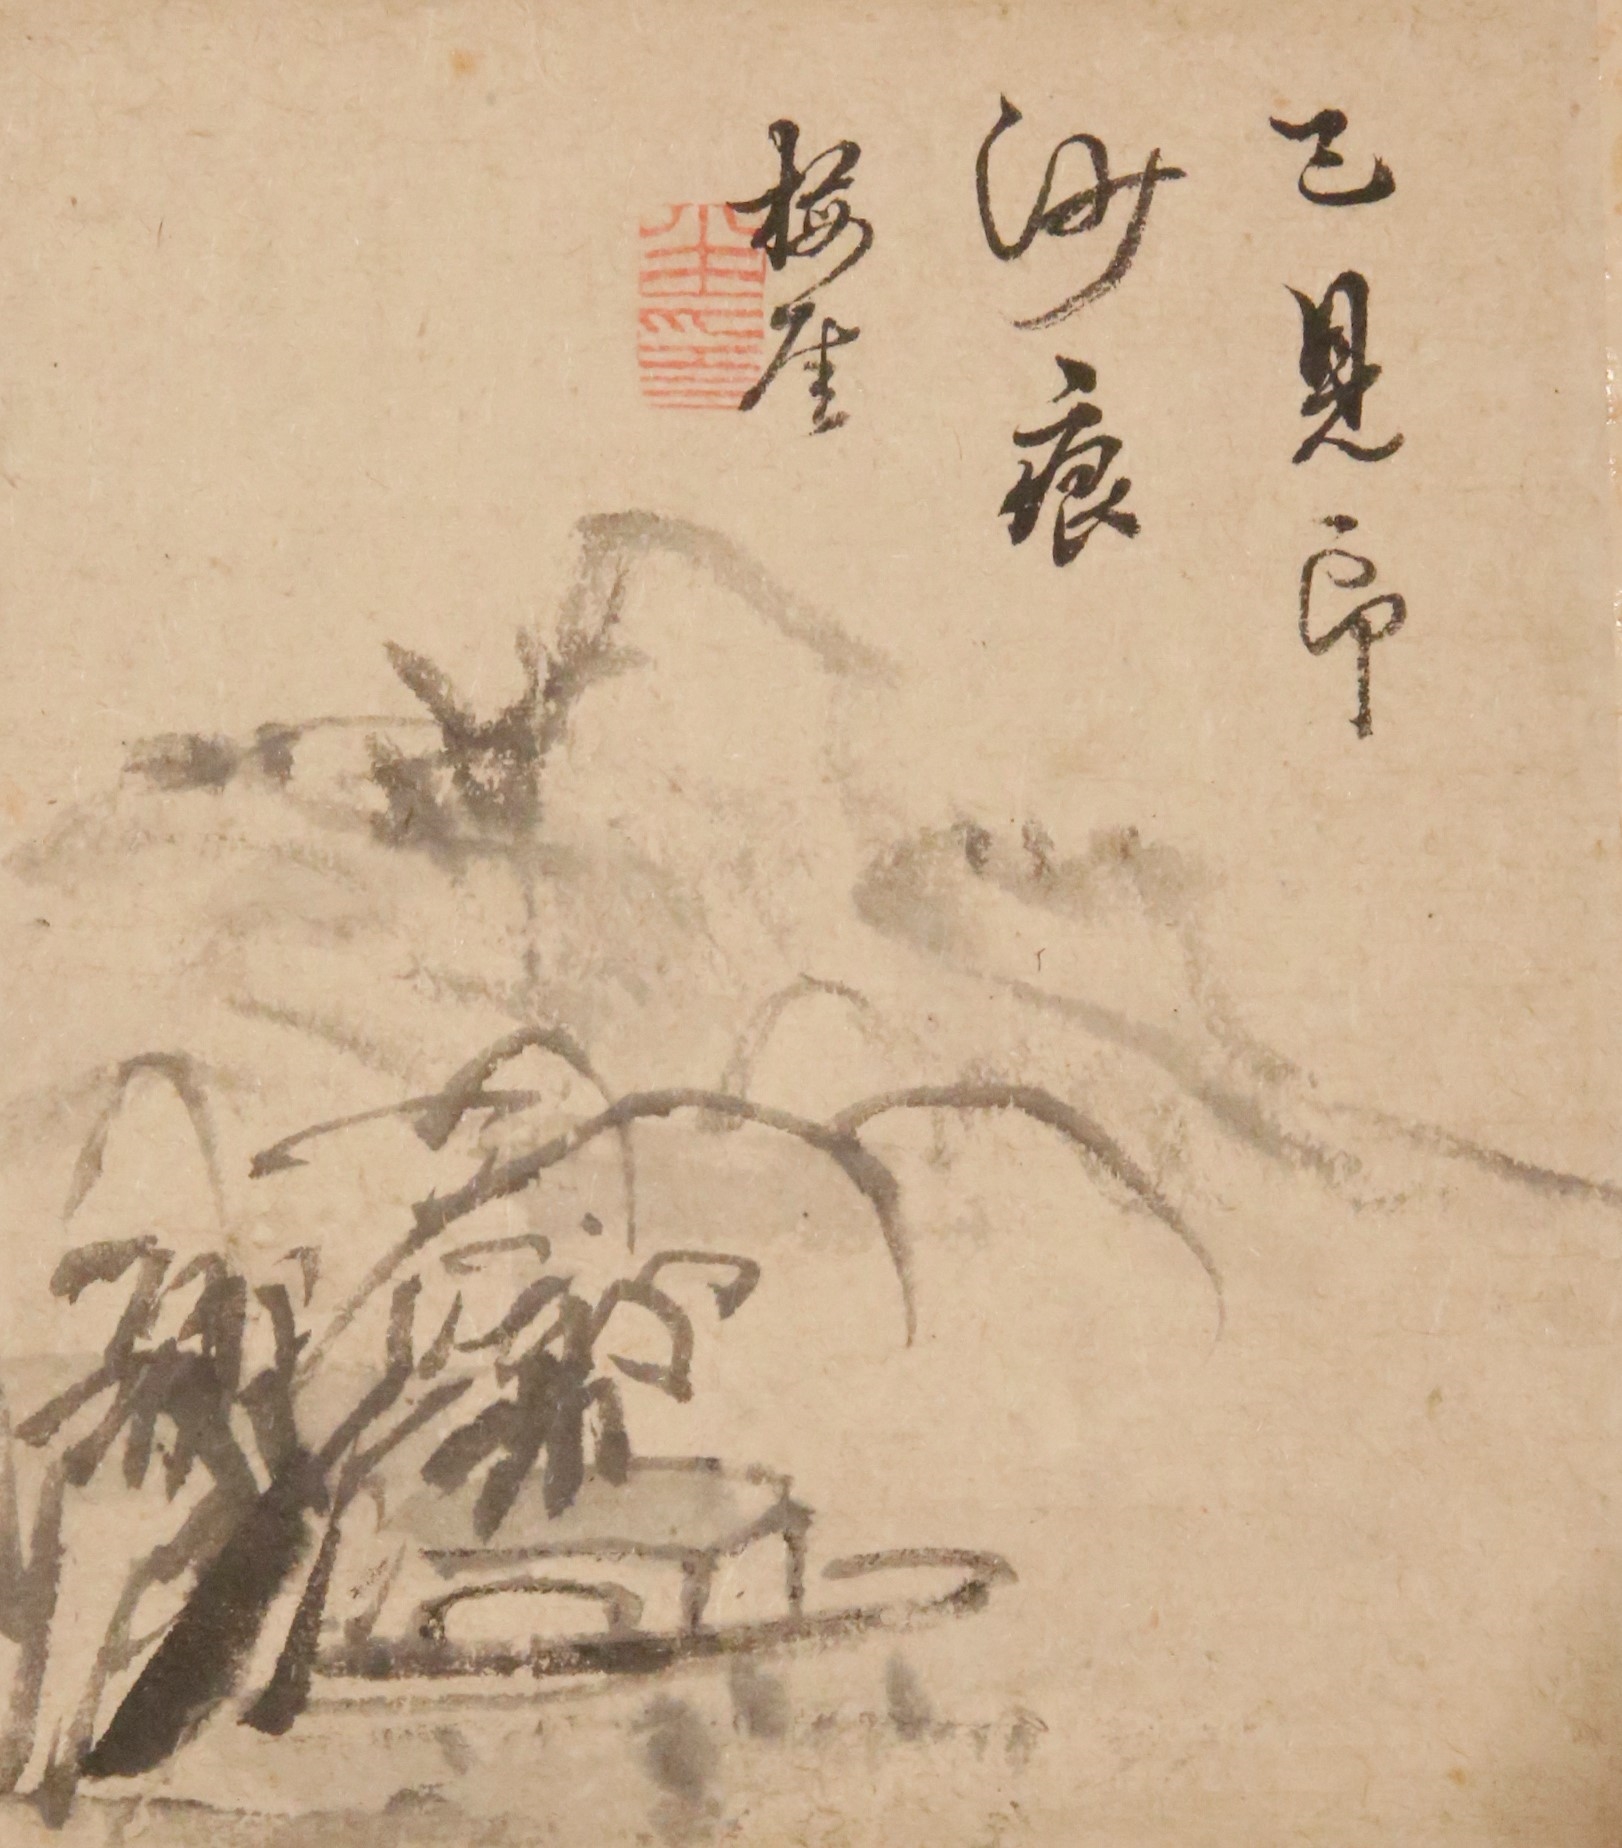 已見印
沙痕
梅厓